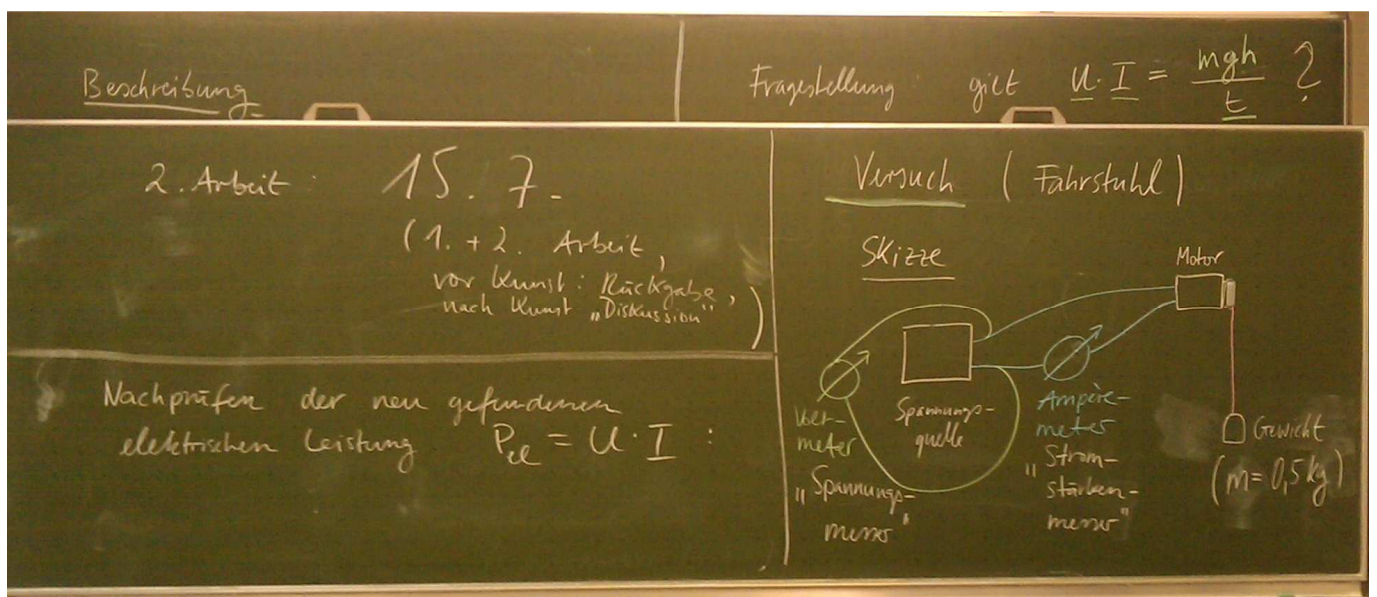 Beschreibung
Fragestellung: gilt U · I = mgh / t ?
2. Arbeit: 15. 7.
(1. + 2. Arbeit,
vor Kunst: Rückgabe,
nach Kunst „Diskussion")
Nachprüfen der neu gefundenen
elektrischen Leistung P_el = U · I :
Versuch (Fahrstuhl)
Skizze
Motor
Volt-
meter
„Spannungs-
messer"
Spannungs-
quelle
Ampère-
meter
„Strom-
stärken-
messer"
Gewicht
(m = 0,5 kg)